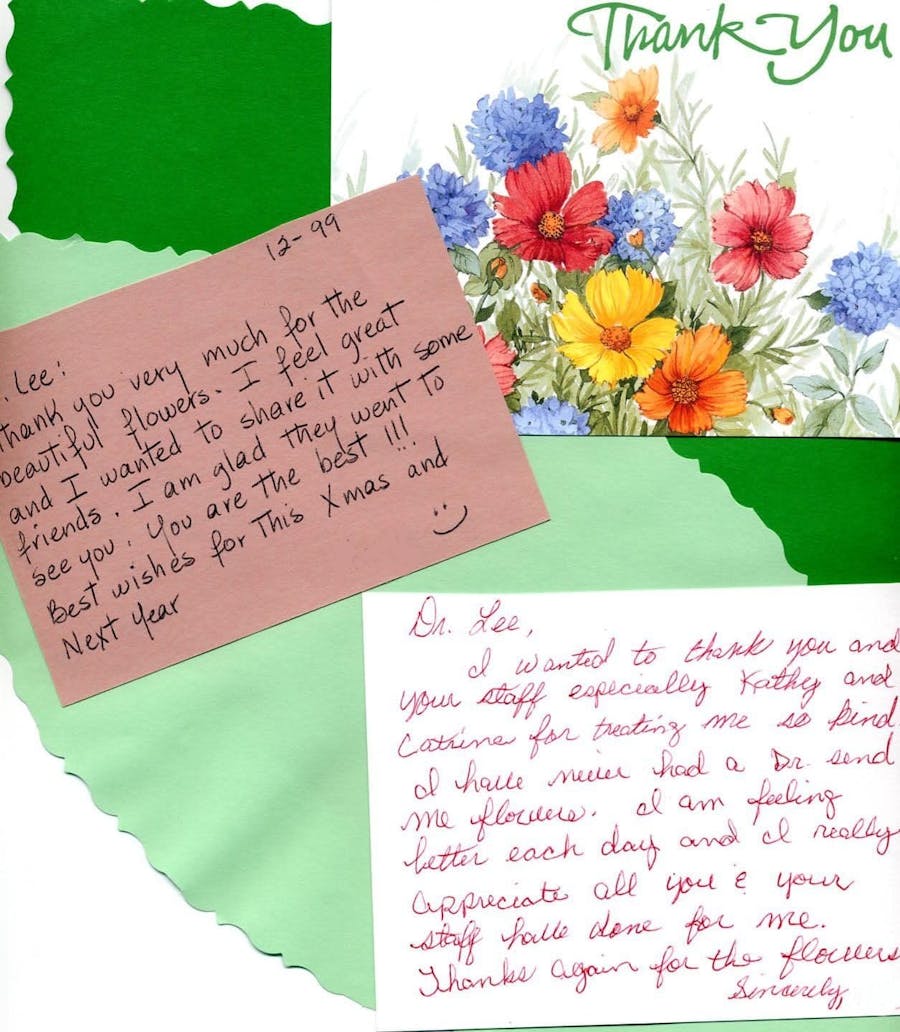 Thank You
12-99
. Lee:
Thank you very much for the
beautiful flowers. I feel great
and I wanted to share it with some
friends. I am glad they went to
see you. You are the best !!!
Best wishes for This Xmas and
Next Year
Dr. Lee,
I wanted to thank you and
your staff especially Kathy and
Catrina for treating me so kind.
I have never had a Dr. send
me flowers. I am feeling
better each day and I really
appreciate all you & your
staff have done for me.
Thanks again for the flowers
Sincerely,